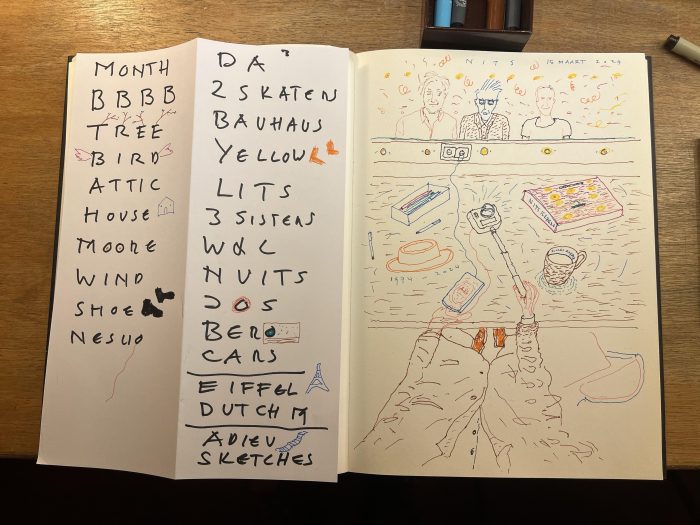 MONTH
BBBB
TREE
BIRD
ATTIC
HOUSE
MOORE
WIND
SHOE
NESUO
DA
2 SKATEN
BAUHAUS
YELLOW
LITS
3 SISTERS
W&L
NUITS
J O S
BERO
CARS
EIFFEL
DUTCH M
ADIEU
SKETCHES
NITS 15 MAART 2024
1974 2024